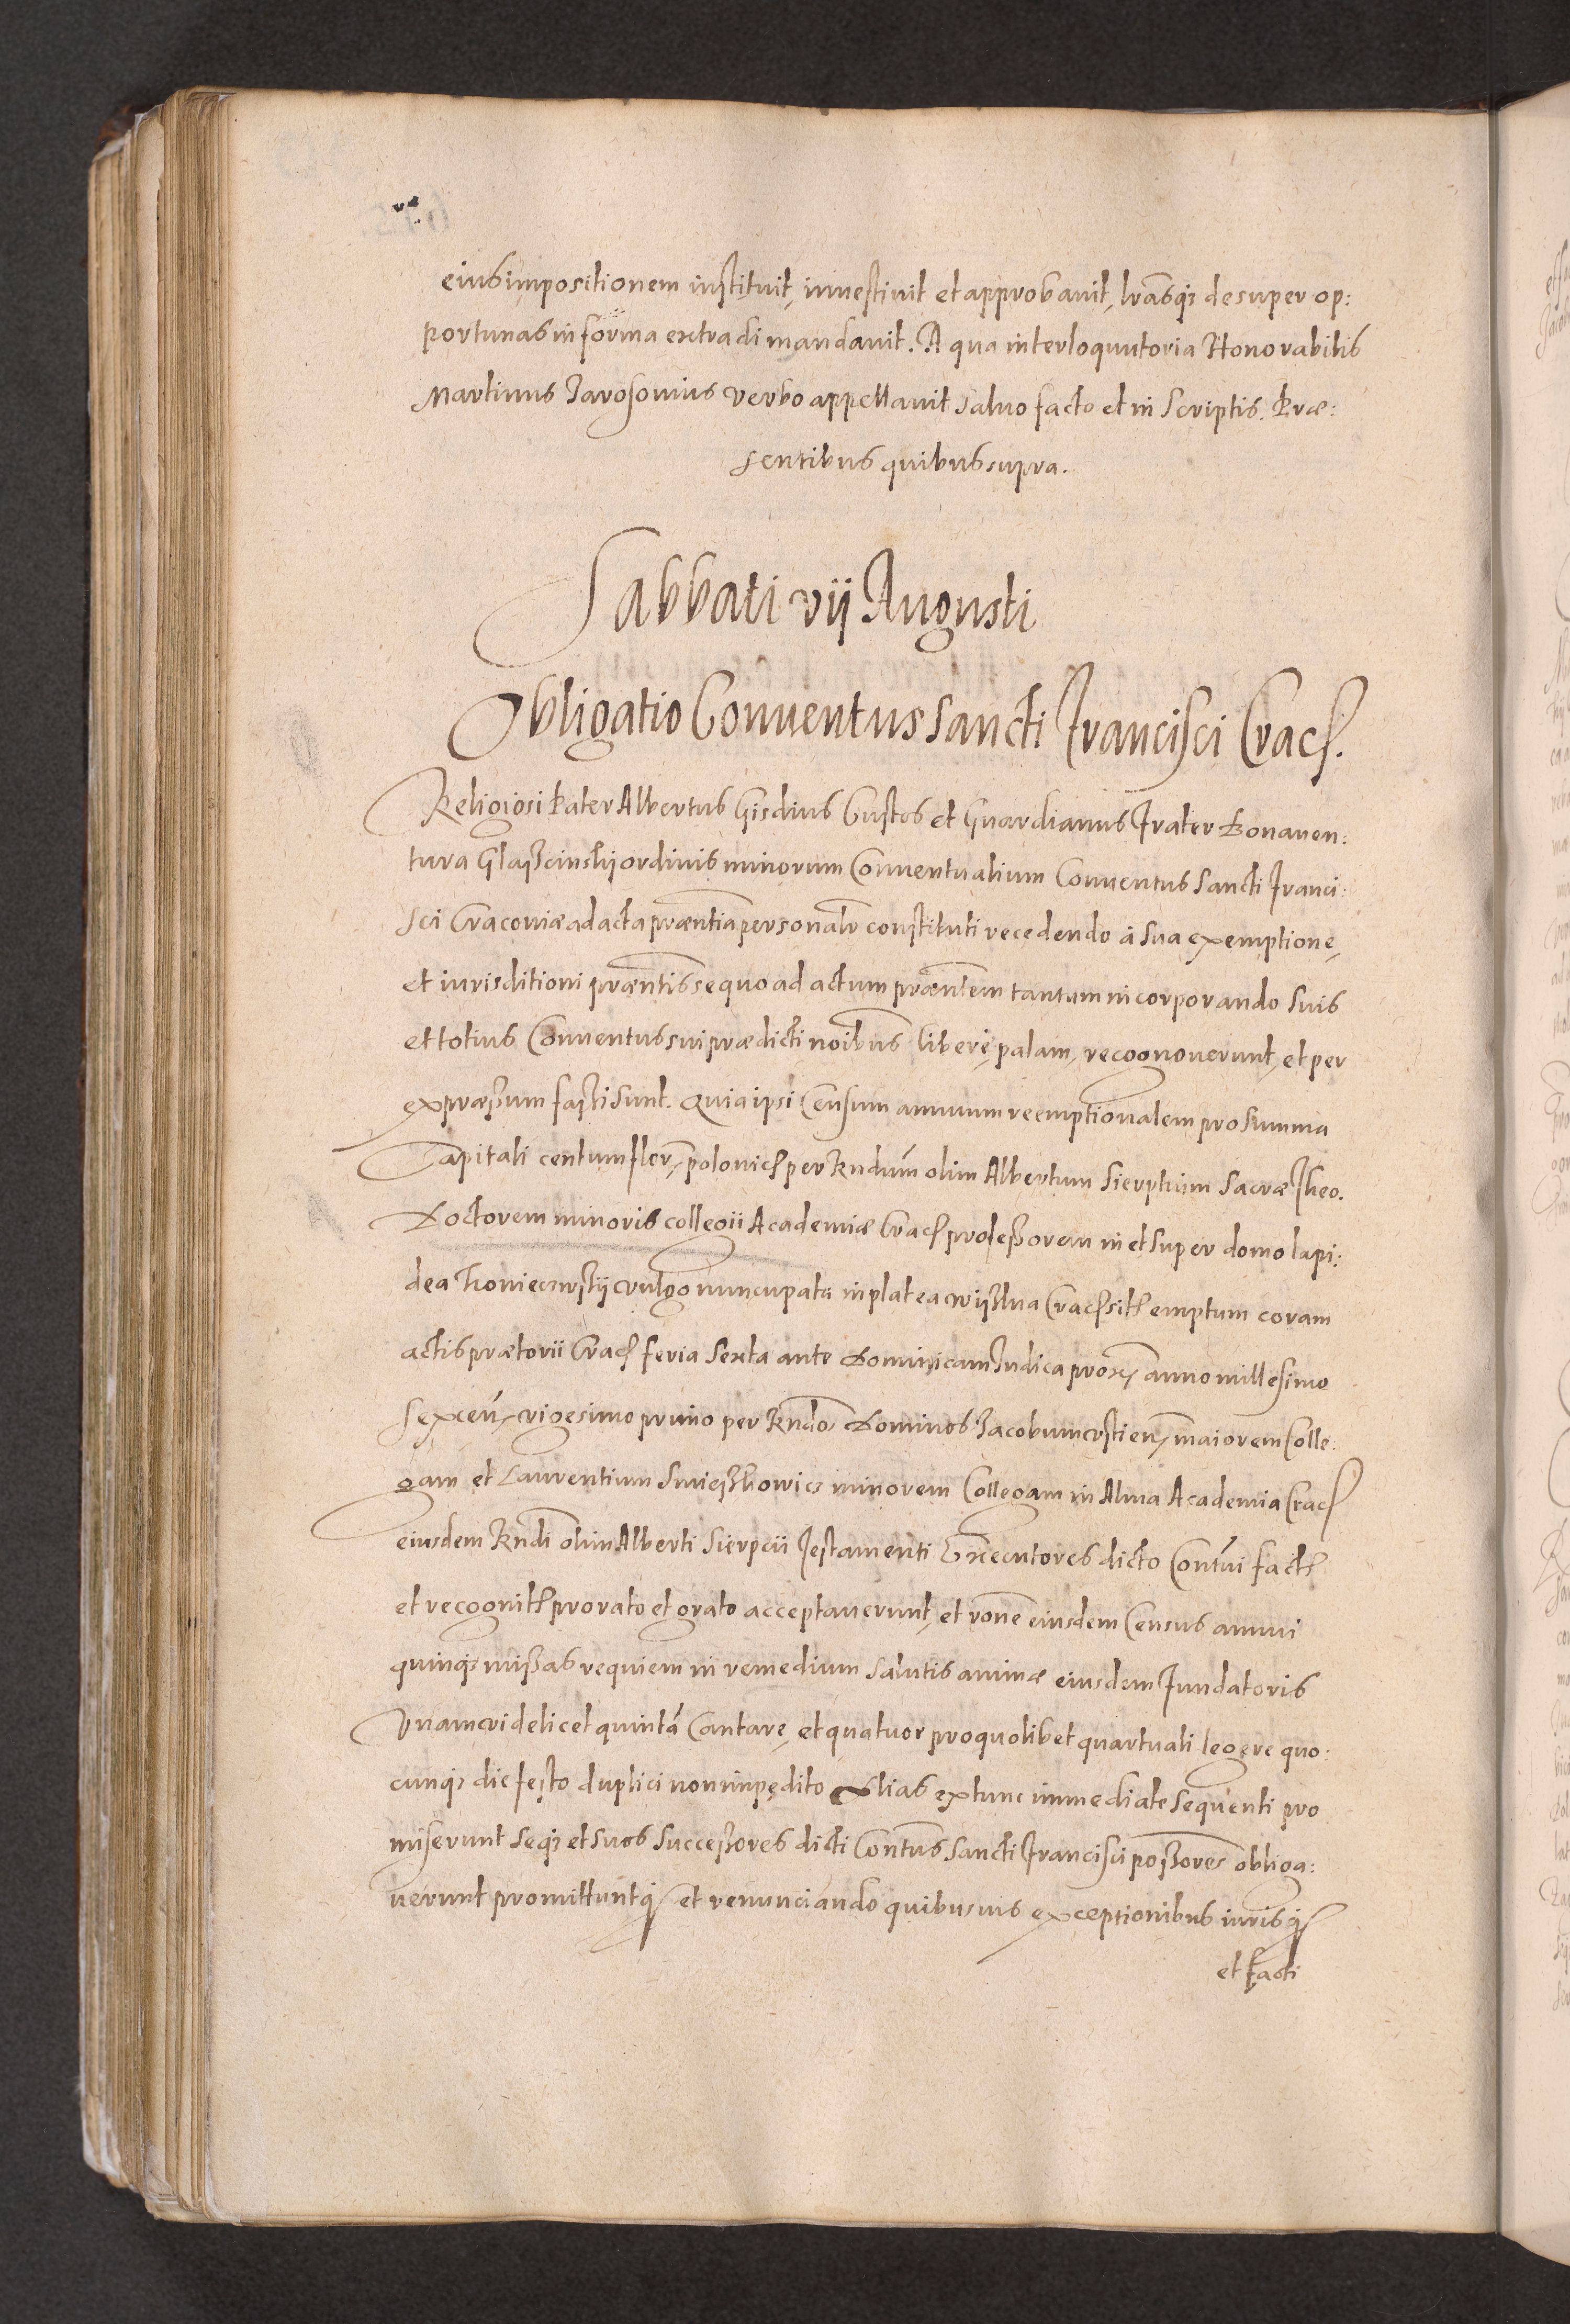 eius impositionem instituit, investivit et approbavit, lrasq; desuper op:
portunas in forma extradi mandavit. A qua interloquutoria Honorabilis
Martinus Jarosonius verbo appellavit salvo facto et in scriptis. Præ:
sentibus quibus supra.
Sabbati vii Augusti
Obligatio Conventus Sancti Francisci Crac.
Religiosi Pater Albertus Gisdius Custos et Guardianus Frater Bonaven:
tura ordinis minorum Conventualium Conventus Sancti Franci:
sci Cracoviæ ad acta præntia personalr constituti recedendo à sua exemptione,
et iurisditioni præntis se quo ad actum præntem tantum incorporando suis
et totius Conventus sui prædicti noibus liberè, palam, recognoverunt, et per
expræßum faßi sunt. Quia ipsi Censum annuum reemptionalem pro summa
Capitali centum flor, polonic per Rndum olim Albertum Sierptium Sacræ Theo.
Doctorem minoris collegii Academiæ Crac profeßorem in et super domo lapi:
dea vulgo nuncupata in platea wißlna Crac sit emptum coram
actis prætorii Crac feria sexta ante Dominicam Judica prox, anno millesimo
sexcen, vigesimo primo per Rndos Dominos Jacobum maiorem Colle:
gam et Laurentium Smießkowicz minorem Collegam in Alma Academia Crac
eiusdem Rndi olim Alberti Sierpcii Testamenti Executores dicto Contui fact
et recognit pro rato et grato acceptaverunt, et rone eiusdem Census annui
quinq; mißas requiem in remedium salutis animæ eiusdem Fundatoris
Unam videlicet quintā Cantare, et quatuor pro quolibet quartuali legere quo:
cunq; die festo duplici non impedito alias extunc immediate sequenti pro
miserunt seq; et suos succeßores dicti Contus Sancti Francisci poßores obliga:
verunt promittuntq; et renunciando quibusvis exceptionibus iurisq;
et facti